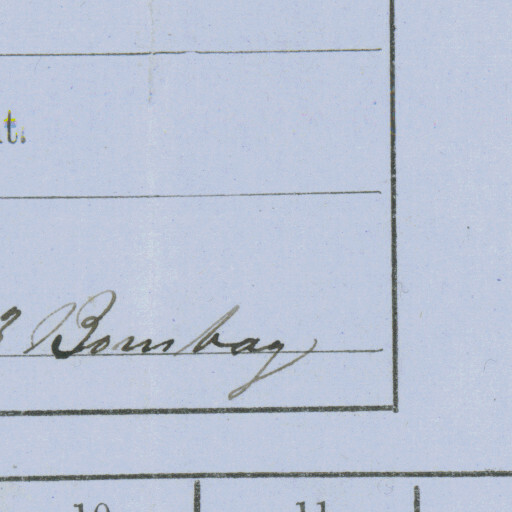 t.
Bombay
10 11